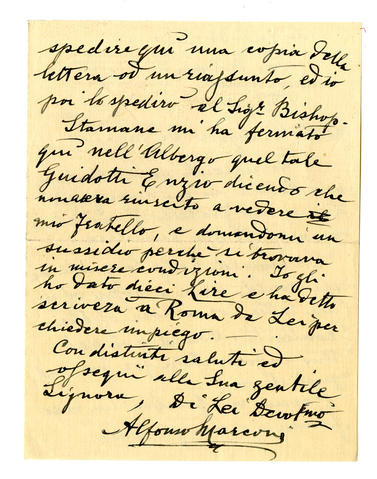 spedire quì una copia della
lettera od un riassunto, ed io
poi lo spedirò al Sigr. Bishop.
Stamane mi ha fermato
quì nell'Albergo quel tale
Guidotti Enzio dicendo che
non era riuscito a vedere
mio fratello, e domandomi un
sussidio perchè si trovava
in misere condizioni. Io gli
ho dato dieci Lire e ha detto
scriverà a Roma da Lei per
chiedere impiego. —
Con distinti saluti ed
ossequi alla Sua gentile
Signora, Di Lei Devotmo
Alfonso Marconi